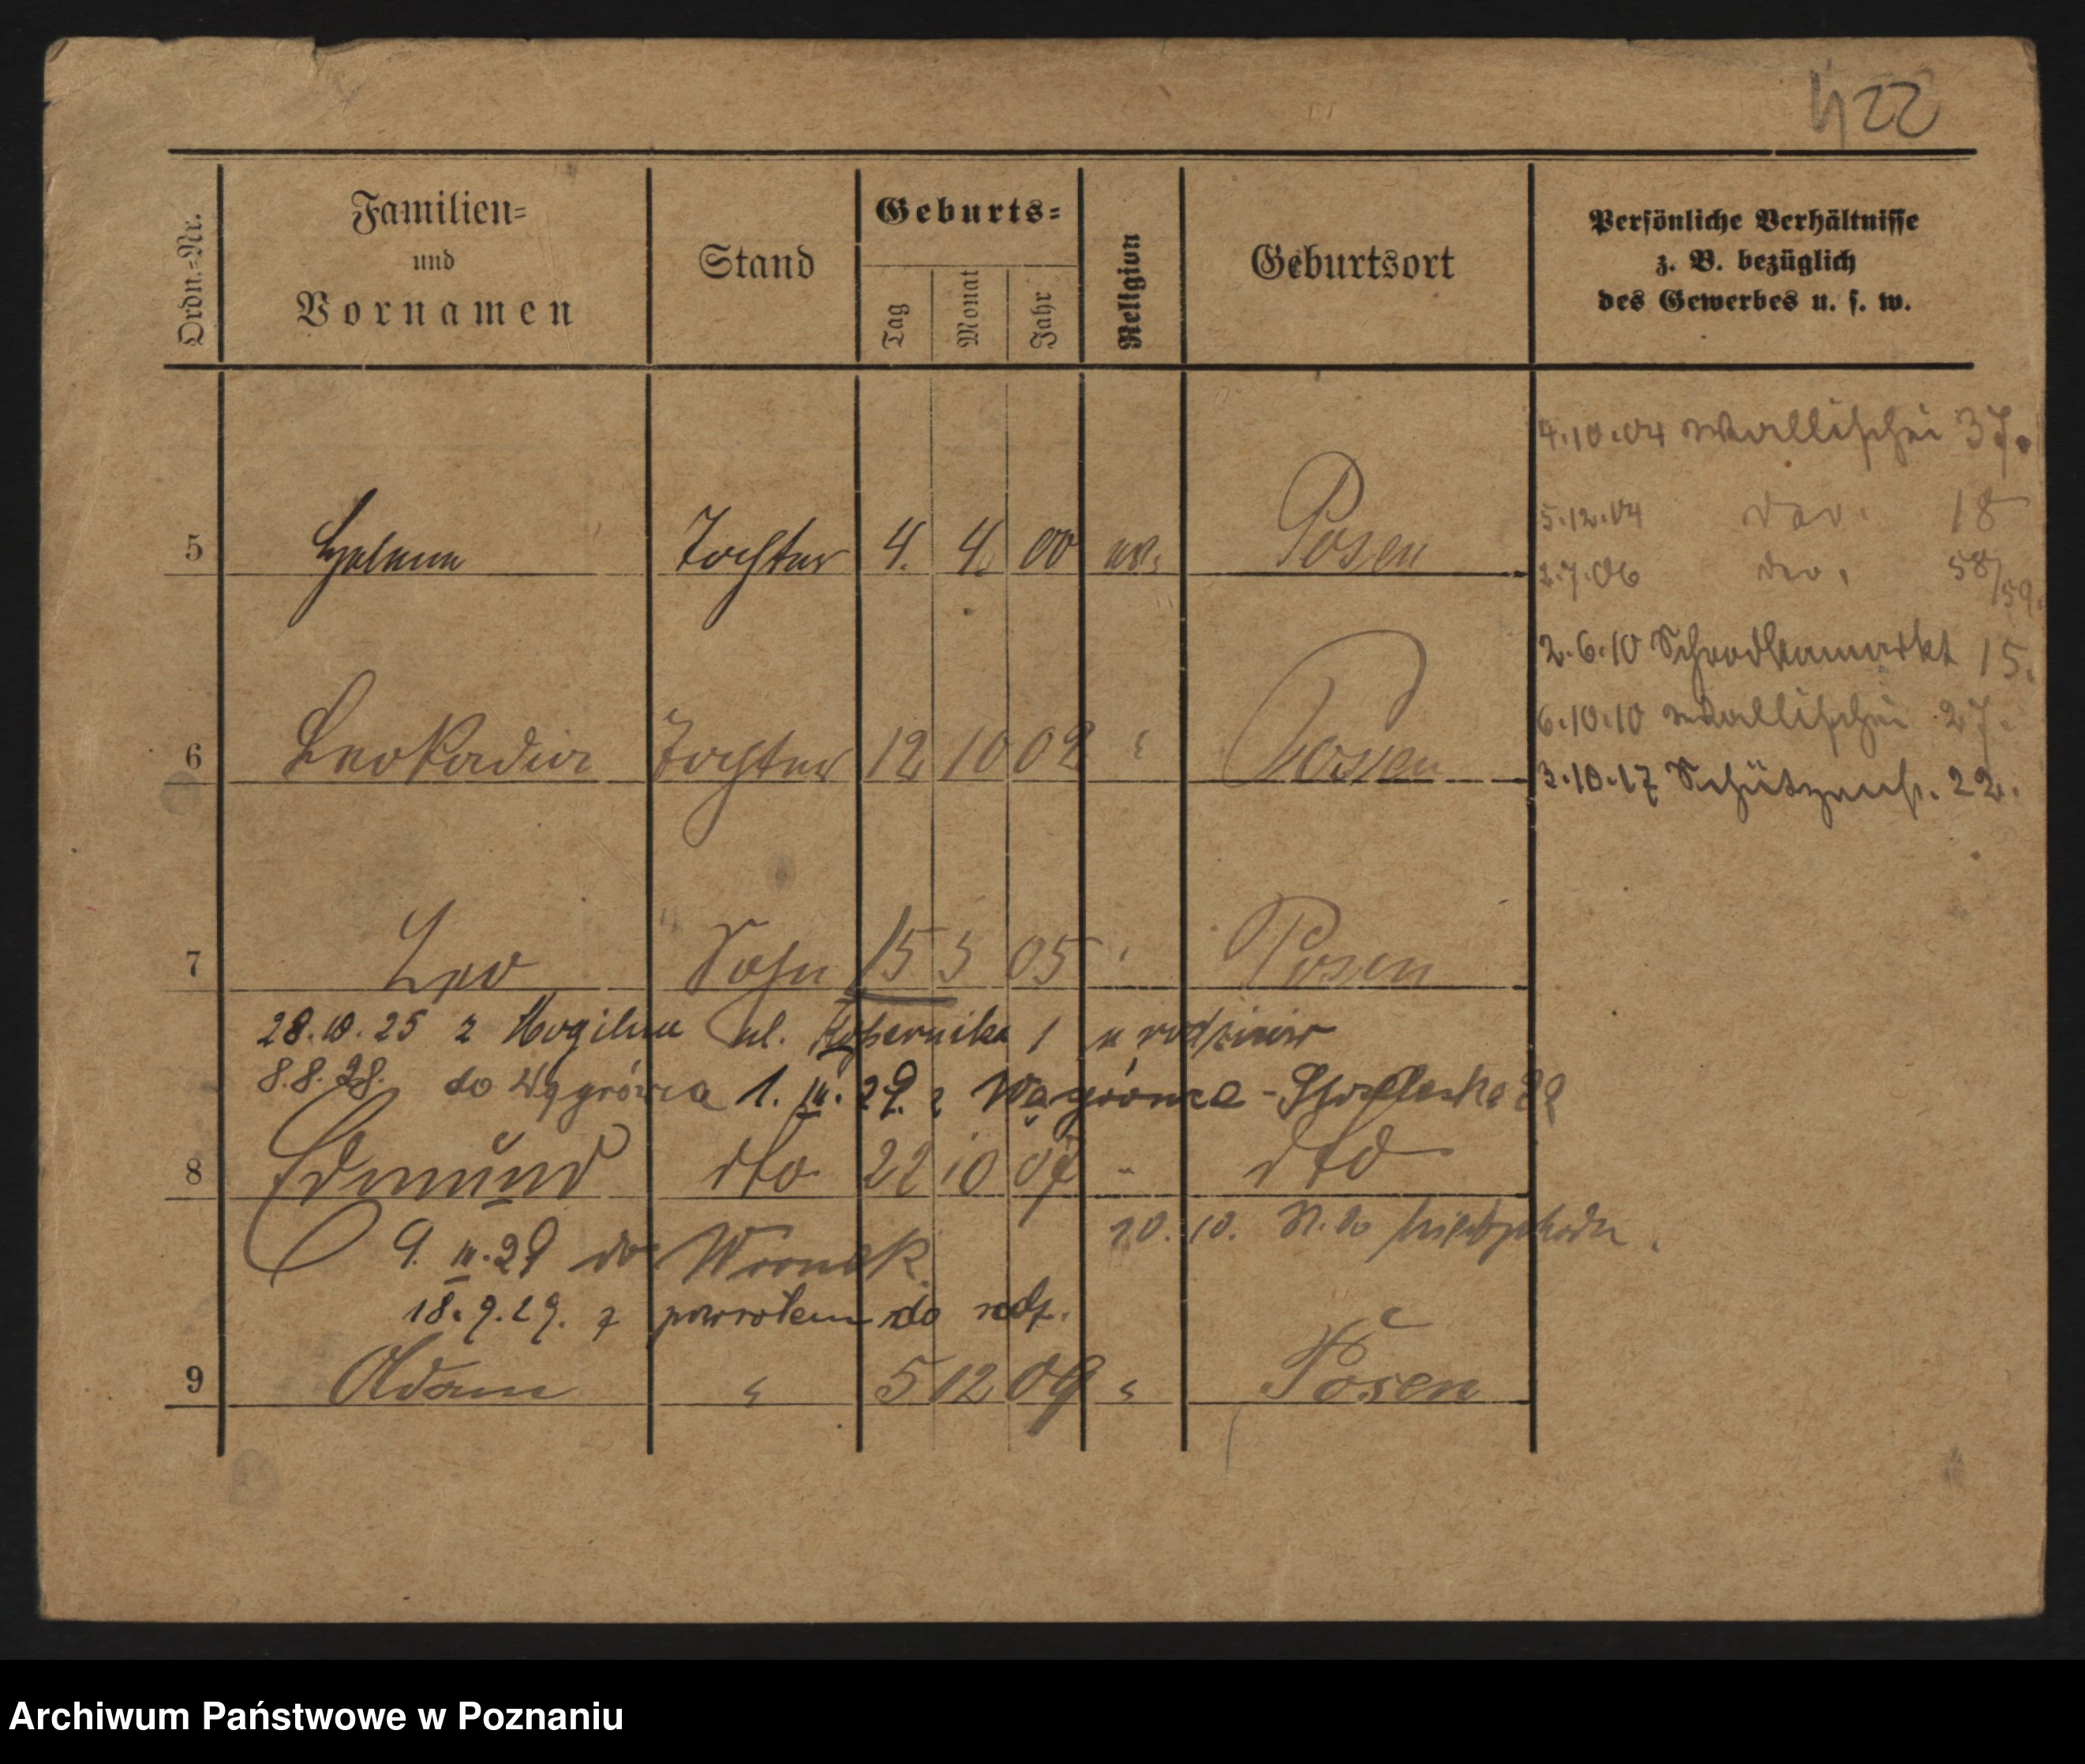 422
Ordn.-Nr.
Familien-
und
Vornamen
Stand
Geburts-
Tag
Monat
Jahr
Religion
Geburtsort
Persönliche Verhältnisse
z. B. bezüglich
des Gewerbes u. s. w.
4.10.04 Wallischei 37.
5 Helene Tochter 4. 4. 00 Posen
5.12.04 do. 18
2.7.06 do. 58/59.
2.6.10 Schrodkamarkt 15.
6.10.10 Wallischei 27.
6 Leokadia Tochter 12 10 02 " Posen
3.10.17 Schützenstr. 22.
7 Leo Sohn 15 3 05 " Posen
28.10.25 z Mogilna ul. Kopernika 1 u rodziców
8.8.28. do Wągrówca 1. III. 29. z Wągrówca - 22
8 Edmund dto 22 10 07 " dto
9. III. 29 do Wronek
20. 10. do
18.9.29. z powrotem do rodz.
9 Adam " 5 12 09 " Posen
Archiwum Państwowe w Poznaniu